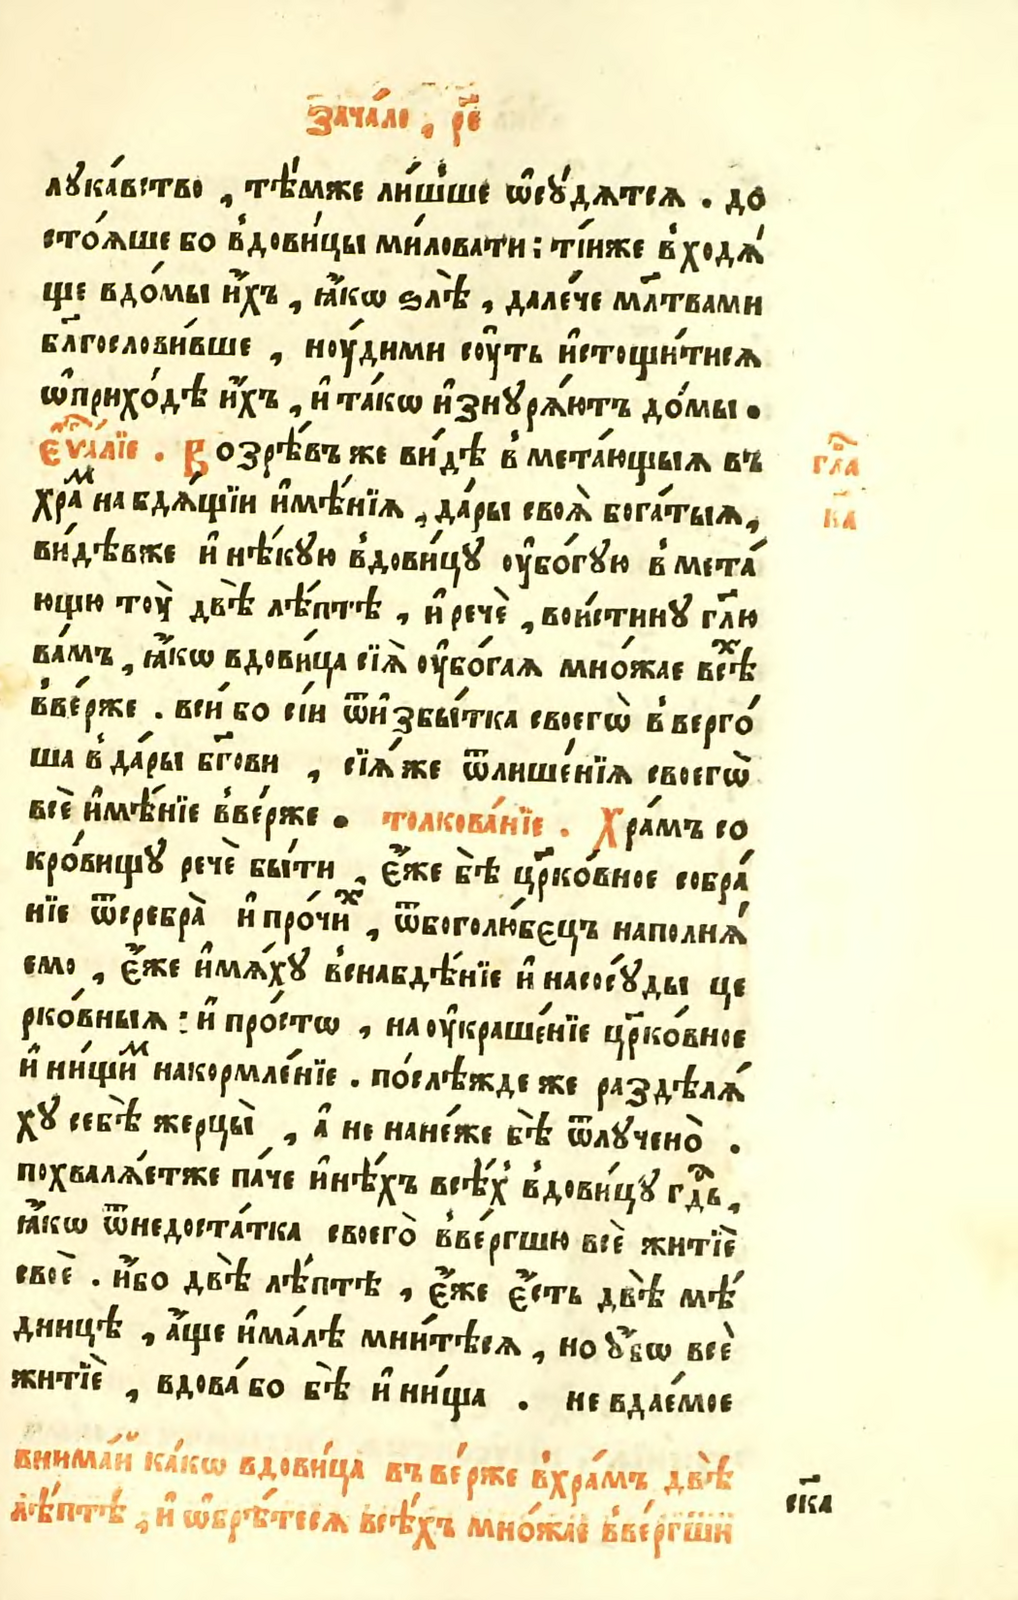 зача́ло , р҃е
лꙋка́вство , тѣ́мже ли́шше ѡ҆сꙋ́дѧтсѧ . до
сто́ѧше бо в҆дови́цы ми́ловати ; ті́иже в҆ходѧ́
ще вдо́мы и҆́хъ , ꙗ҆́кѡ ѕлѣ̀ , дале́че мл҃твами
бл҃гослови́вше , ноу́дими соу҆́ть и҆стощи́тисѧ
ѡ҆прихо́дѣ и҆́хъ , и҆ та́кѡ и҆знꙋрѧ́ютъ до́мы .
є҆ѵⷢ҇а́лїе . Возрѣ́въ же ви́дѣ в҆мета́ющыѧ въ
хра́ⷨ набдѧ́щїи и҆мѣ́нїѧ , да́ры своѧ̀ бога́тыѧ ,
ви́дѣвже и҆ нѣ́кꙋю в҆дови́цꙋ оу҆бо́гꙋю в҆мета́
ющю тоу̀ двѣ̀ лѣ́птѣ , и҆ речѐ , вои́стинꙋ гл҃ю
ва́мъ , ꙗ҆́кѡ вдови́ца сїѧ̀ оу҆бо́гаѧ мно́жае всѣ́ⷯ
в҆ве́рже . вси́ бо сі́и ѿи҆збы́тка своегѡ̀ в҆верго́
ша в҆ да́ры бг҃ови , сїѧ́же ѿлише́нїѧ своегѡ̀
всѐ и҆мѣ́нїе в҆ве́рже . толкова́нїе . Хра́мъ со
кро́вищꙋ речѐ бы́ти , є҆́же бѣ̀ цр҃ко́вное собра́
нїе ѿсребра̀ и҆ про́чиⷯ , ѿбоголю́бєцъ наполнѧ́
емо , є҆́же и҆мѧ́хꙋ в҆снабдѣ́нїе и҆ насосꙋ́ды це
рко́вныѧ : и҆ про́стѡ , на оу҆краше́нїе цр҃ко́вное
и҆ ни́щиⷨ накормле́нїе . по́слѣжде же раздѣлѧ́
хꙋ себѣ̀ жерцы̀ , а҆ не нане́же бѣ̀ ѿлꙋчено̀ .
похвалѧ́етже па́че и҆нѣ́хъ всѣ́х в҆дови́цꙋ гдⷭ҇ь ,
ꙗ҆́кѡ ѿнедоста́тка своего̀ в҆ве́ргшю всѐ житїѐ
своѐ . и҆́бо двѣ̀ лѣ́птѣ , є҆́же є҆́сть двѣ̀ мѣ́
дницѣ , а҆́ще и҆ма́лѣ мни́тѣсѧ , но ᲂу҆́бѡ всѐ
житїѐ , вдова́ бо бѣ̀ и҆ ни́ща . не вдае́мое
внима́й ка́кѡ вдови́ца въве́рже в҆хра́мъ двѣ̀
лѣ́птѣ , и҆ ѡ҆брѣ́тесѧ всѣ́хъ мно́жае в҆ве́ргши
гл҃а
к҃а
ск҃а